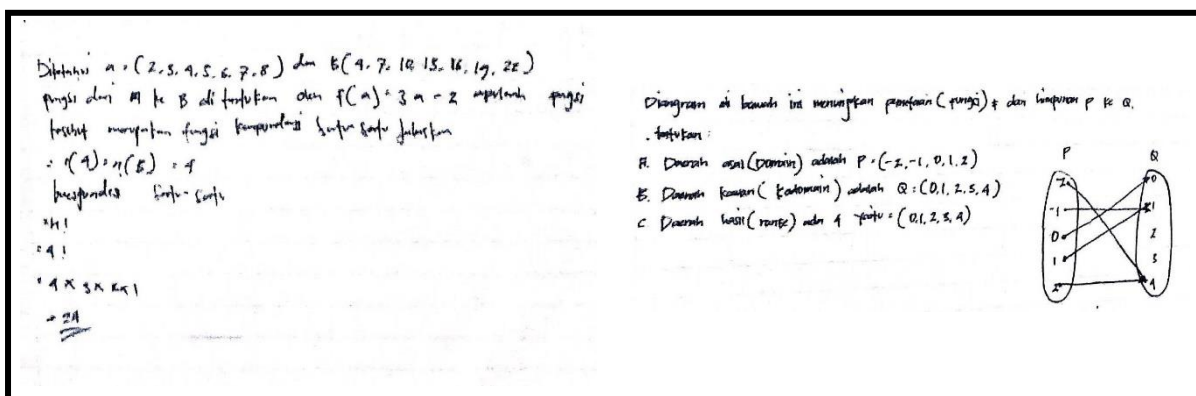 Diketahui a = (2, 3, 4, 5, 6, 7, 8) dan B (4, 7, 10, 13, 16, 19, 22)
fungsi dari A ke B di tentukan oleh f(a) = 3a - 2 apakah fungsi
tersebut merupakan fungsi satu-satu jelaskan
= n(A) = n(B) = 4
satu-satu
= n!
= 4!
= 4 x 3 x 2 x 1
= 24
Diangram di bawah ini menunjukan pemetaan (fungsi) f dari himpunan P ke Q.
tentukan :
A. Daerah asal (Domain) adalah P = (-2, -1, 0, 1, 2)
B. Daerah kawan (Kodomain) adalah Q : (0, 1, 2, 3, 4)
C. Daerah hasil (range) yaitu = (0, 1, 2, 3, 4)
P Q
-2 0
-1 1
0 2
1 3
2 4